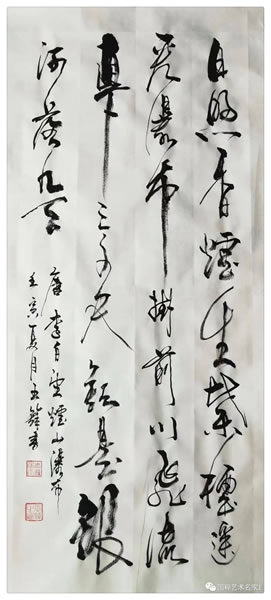 日照香爐生紫煙遥
看瀑布掛前川飛流
直下三千尺疑是銀
河落九天
唐李白望爐山瀑布
壬寅夏月
国粹艺术名家